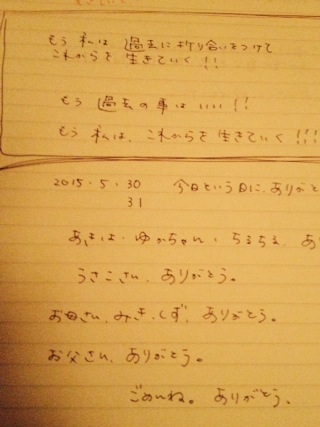 もう 私は 過去に折り合いをつけて
これからを 生きていく!!
もう 過去の事は いい!!
もう 私は、これからを 生きていく!!!
2015・5・30 今日という日に、ありがと
31
ゆかちゃん・ちるちる、あ
うさこさん、ありがとう。
お母さん、みき、しず、ありがとう。
お父さん、ありがとう。
ごめんね。ありがとう、